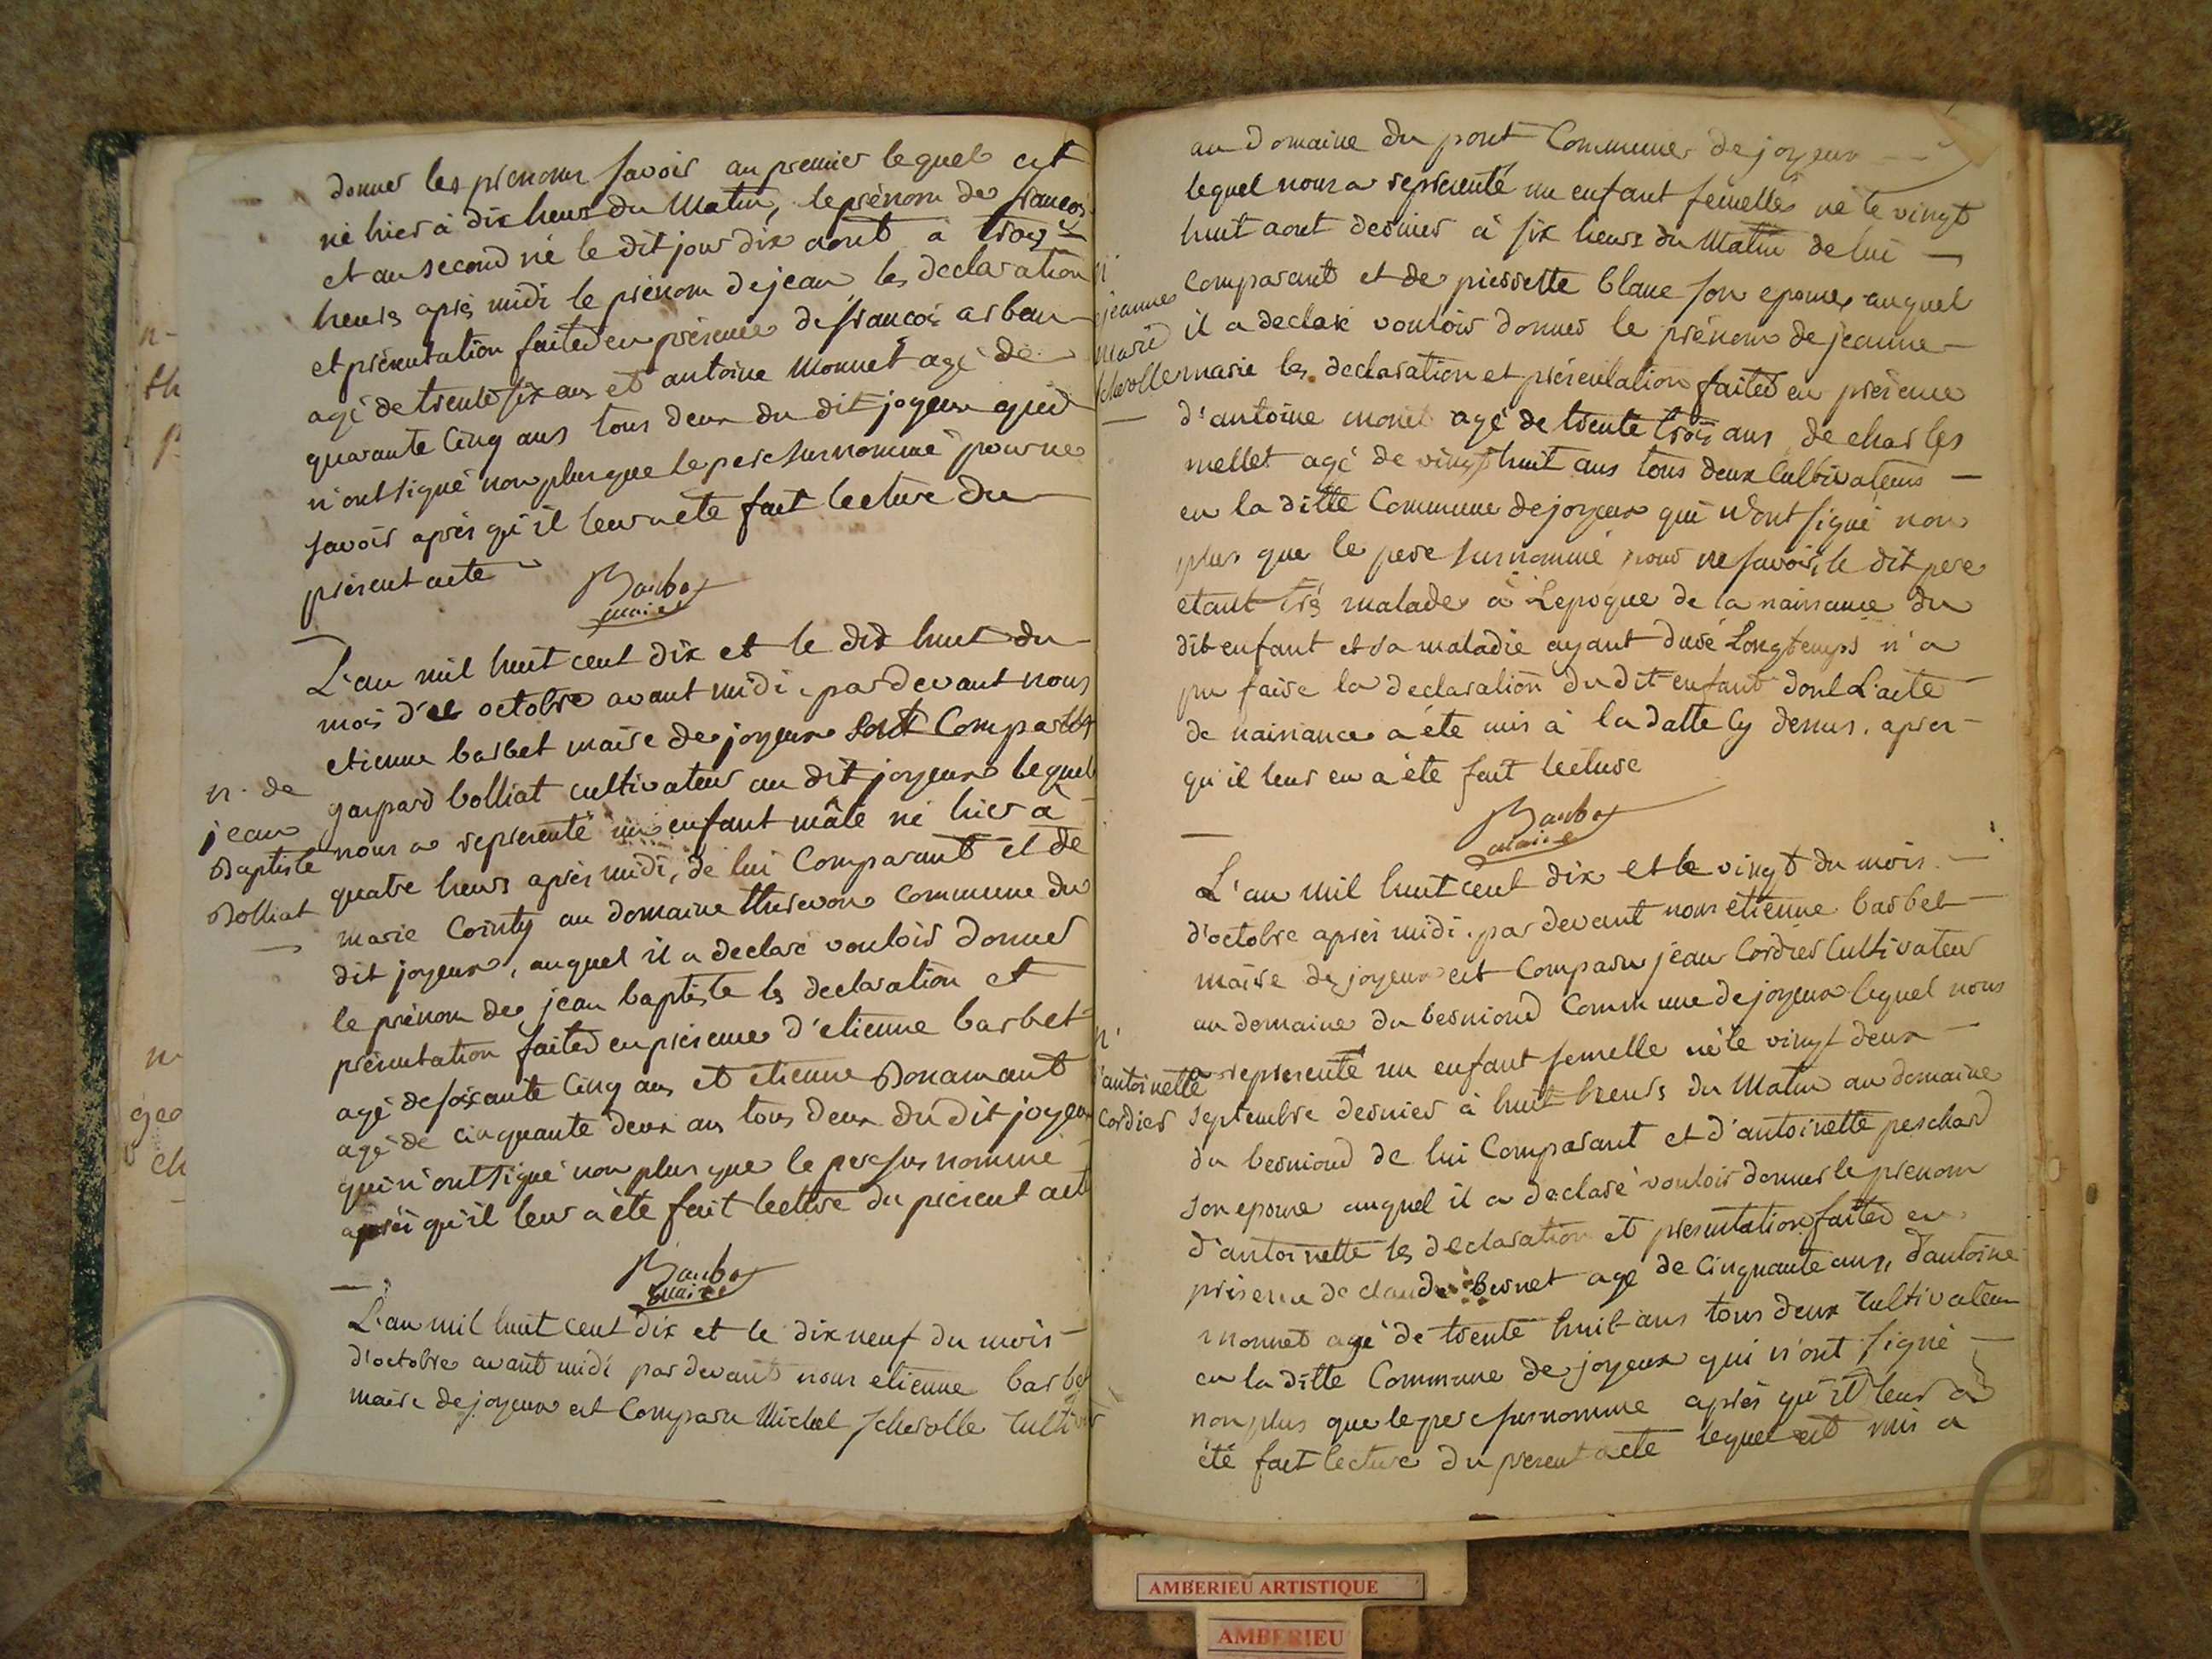 donner les prenoms savoir au premier lequel est
né hier à dix heures du Matin, le prénom de francois
et au second né le dit jour dix aout à trois
heures après midi le prénom de jean, les declaration
et présentation faites en présence de francois arban
agé de trente six ans et antoine Monnet agé de
quarante Cinq ans tous deux du dit joyeux qui
n'ont signé non plus que le pere surnommé pour ne
savoir après qu'il leur a été fait lecture du
présent acte
Barbet
maire
L'an mil huit cent dix et le dix huit du
mois d' octobre avant midi, par devant nous
etienne barbet maire de joyeux est Comparu
n. de
jean
Baptiste
Bolliat
gaspard bolliat cultivateur au dit joyeux lequel
nous a représenté un enfant mâle né hier à
quatre heures après midi, de lui Comparant et de
marie Cointy au domaine thirevon Commune du
dit joyeux, auquel il a declaré vouloir donner
le prénom de jean baptiste les declaration et
présentation faites en présence d'etienne barbet
agé de soixante Cinq ans et etienne Bonamant
agé de cinquante deux ans tous deux du dit joyeux
qui n'ont signé non plus que le pere sus nommé
après qu'il leur a été fait lecture du présent acte
Barbet
maire
L'an mil huit cent dix et le dix neuf du mois
d'octobre avant midi par devant nous etienne barbet
maire de joyeux est Comparu Michel scherolle Cultivr
n
ch
n
geo
ch
au Domaine du pont Commune de joyeux
lequel nous a représenté un enfant femelle né le vingt
huit aout dernier à six heures du Matin de lui
Comparant et de pierrette blanc son epouse, auquel
n.
jeanne
marie
scherolle
il a declaré vouloir donner le prénom de jeanne
marie les declaration et présentation faites en présence
d'antoine monet agé de trente trois ans, de charles
mellet agé de vingt huit ans tous deux Cultivateurs
en la ditte Commune de joyeux qui n'ont signé non
plus que le pere surnommé pour ne savoir, le dit pere
etant très malade à L'epoque de la naissance du
dit enfant et sa maladie ayant duré Longtemps n'a
pu faire la declaration du dit enfant dont L'acte
de naissance a été mis à la datte Cy dessus, après
qu'il leur en a été fait lecture
Barbet
maire
L'an mil huit cent dix et le vingt du mois
d'octobre après midi, par devant nous etienne barbet
maire de joyeux est Comparu jean Cordier Cultivateur
au domaine du besniond Commune de joyeux lequel nous
n.
d'antoinette
Cordier
a représenté un enfant femelle né le vingt deux
septembre dernier à huit heures du Matin au domaine
du besniond de lui Comparant et d'antoinette peschard
son epouse auquel il a declaré vouloir donner le prenom
d'antoinette les declaration et présentation faites en
présence de claude bernet agé de Cinquante ans, d'antoine
monnet agé de trente huit ans tous deux Cultivateurs
en la ditte Commune de joyeux qui n'ont signé
non plus que le pere surnommé après qu'il leur a
été fait lecture du présent acte lequel est mis a
AMBERIEU ARTISTIQUE
AMBERIEU